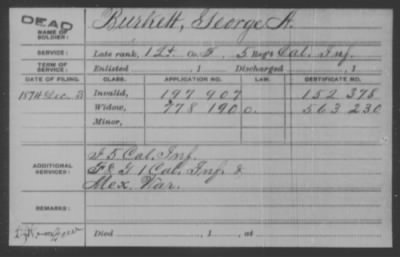 DEAD
NAME OF SOLDIER: Burkett, George A.
SERVICE: Late rank, 1 Lt. Co. F, 5 Reg't Cal. Inf.
TERM OF SERVICE: Enlisted , 1 Discharged , 1
DATE OF FILING. CLASS. APPLICATION NO. LAW. CERTIFICATE NO.
1874 Dec. Invalid, 197 907 152 378
Widow, 778 190 563 230
Minor,
ADDITIONAL SERVICES:
F 5 Cal. Inf.
F & G 1 Cal. Inf. &
Mex. War.
REMARKS:
Died , 1 , at